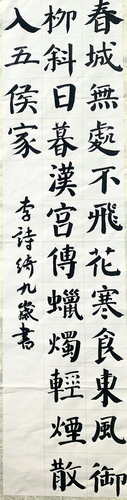 春城無處不飛花寒食東風御
柳斜日暮漢宮傳蠟燭輕煙散
入五侯家
李詩綺九歲書